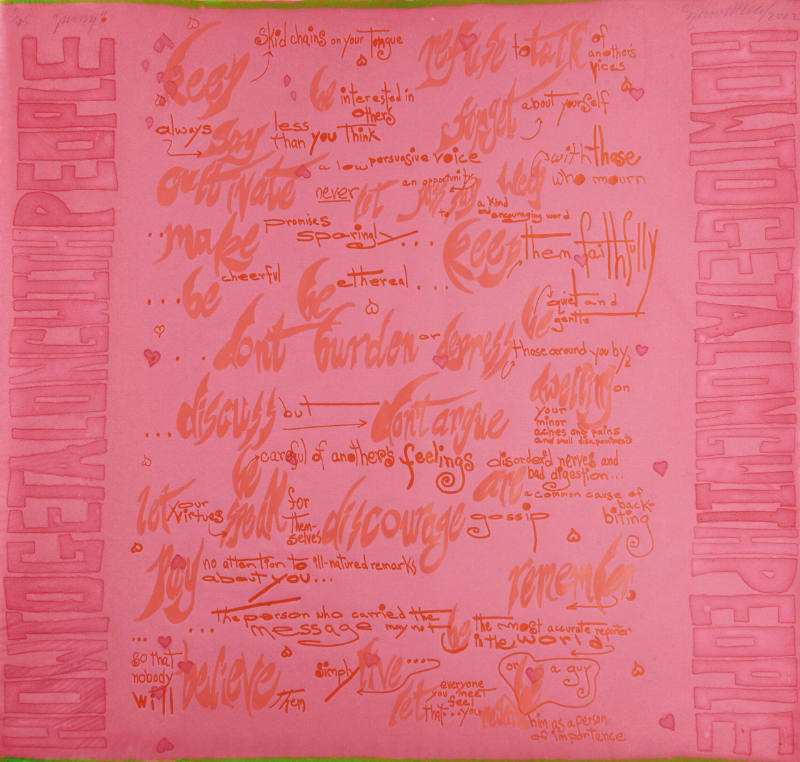 HOW TO GET ALONG WITH PEOPLE
keep skid chains on your Tongue
refuse to talk of another's vices
be interested in others
forget about yourself
always say less than you Think
cultivate a low persuasive voice
keep with those who mourn
never let an opportunity to say a kind and encouraging word
..make promises sparingly...
keep them faithfully
...be cheerful be ethereal...
be quiet and gentle
.. don't burden or depress those around you by
dwelling on your minor aches and pains and small disappointments
...discuss but don't argue
be careful of another's feelings
disorder'd nerves and bad digestion...
are a common cause of back-biting
let your virtues speak for them-selves
discourage gossip
Pay no attention to ill-natured remarks about you...
remember
... the person who carried the message may not be the most accurate reporter in the world
... so that nobody will believe them
simply live....
or be a guy
let everyone you meet feel that...you
him as a person of importence
HOW TO GET ALONG WITH PEOPLE